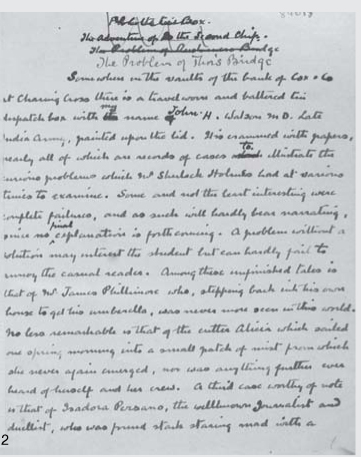 The Adventure of the Second Chip.
The Problem of Bridge
The Problem of Thor Bridge
Somewhere in the vaults of the bank of Cox & Co
at Charing Cross there is a travel worn and battered tin
despatch box with my name John H. Watson M.D. Late
India Army, painted upon the lid. It is crammed with papers,
nearly all of which are records of cases to illustrate the
curious problems which Mr Sherlock Holmes had at various
times to examine. Some and not the least interesting were
complete failures, and as such will hardly bear narrating,
since no final explanation is forthcoming. A problem without a
solution may interest the student but can hardly fail to
annoy the casual reader. Among these unfinished tales is
that of Mr James Phillimore who, stepping back into his own
house to get his umbrella, was never more seen in this world.
No less remarkable is that of the cutter Alicia which sailed
one spring morning into a small patch of mist from which
she never again emerged, nor was anything further ever
heard of herself and her crew. A third case worthy of note
is that of Isadora Persano, the wellknown Journalist and
duellist, who was found stark staring mad with a
2